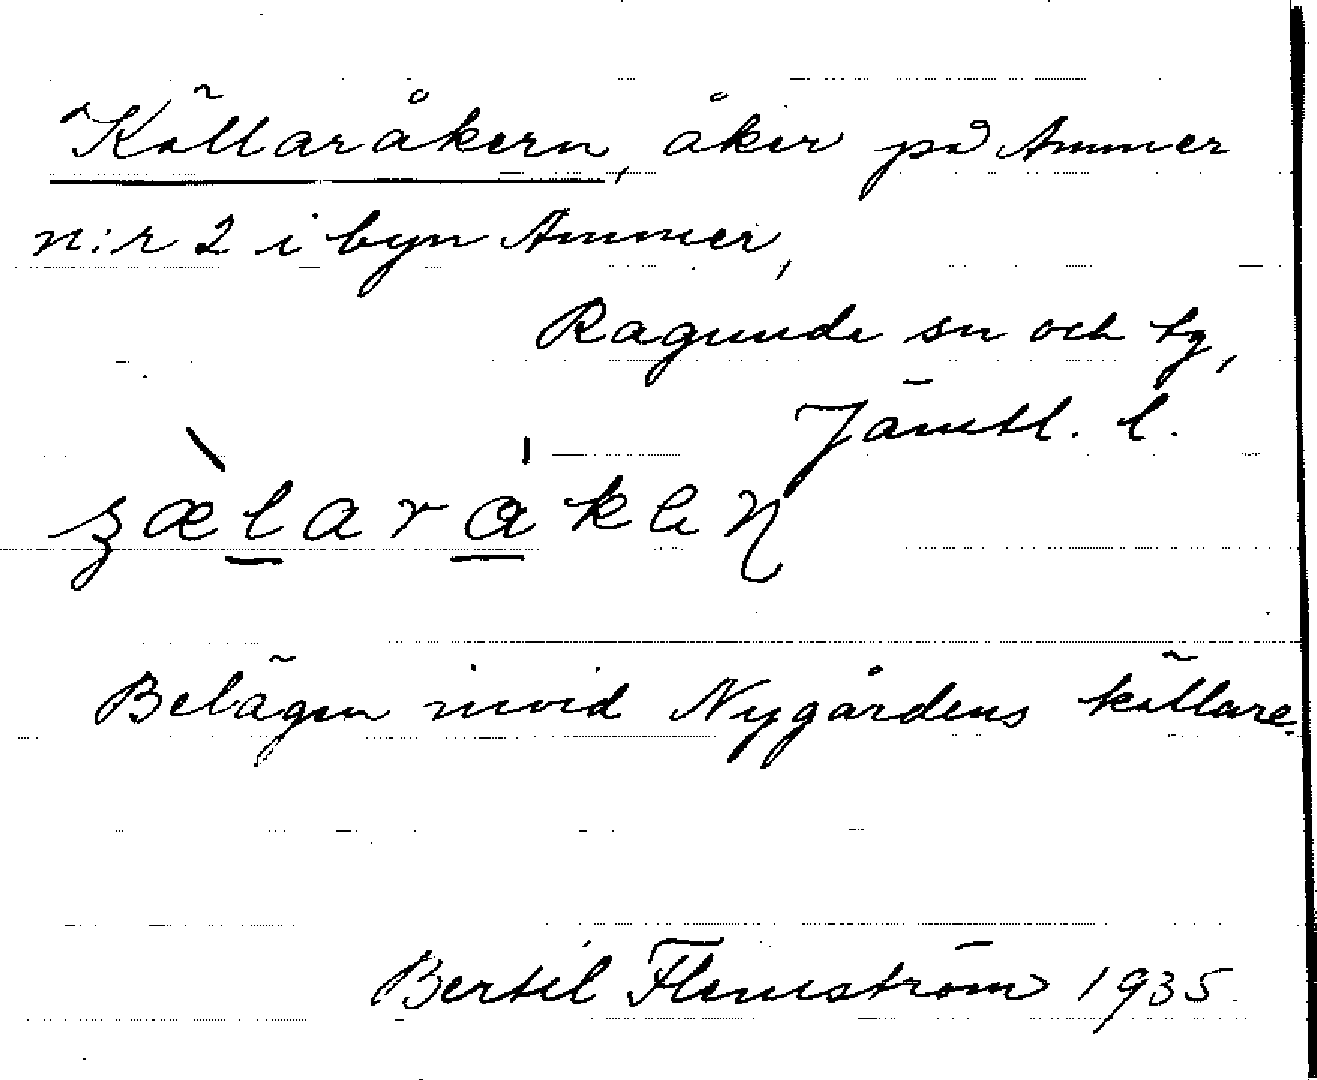 Källaråkern, åker på Ammer
n:r 2 i byn Ammer,
Ragunda sn och tg,
Jämtl. l.
Belägen invid Nygårdens källare.
Bertil Flemström 1935.